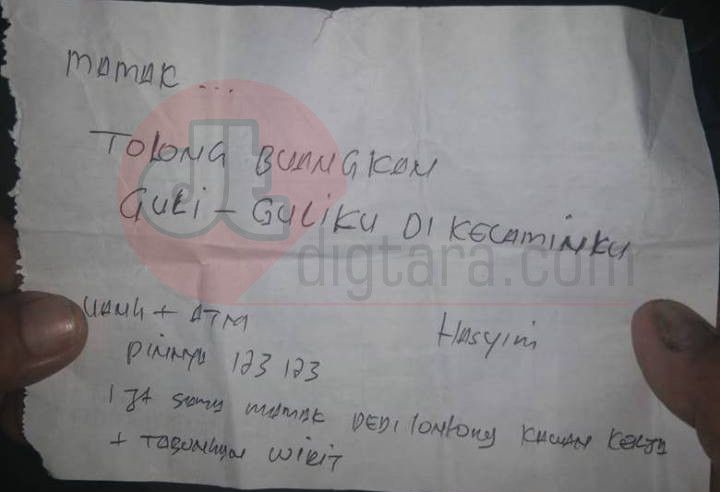 MAMAK ...
TOLONG BUANGKAN
GULI - GULIKU DI KELAMINKU
digtara.com
UANG + ATM
Hasyim
PINNYA 123 123
1 Jt sama mamak DEDI lontong KAWAN KERJA
+ TABUNGAN WIRIT